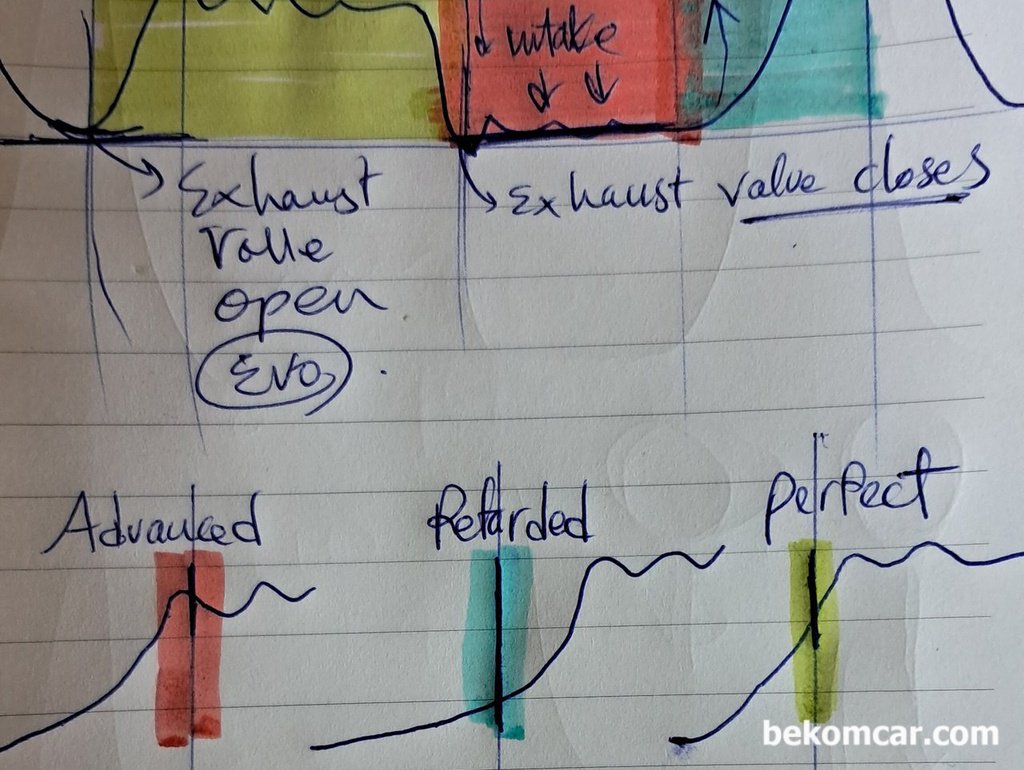 intake
Exhaust
Valve
open
EVO
Exhaust value closes
Advanced
Retarded
perfect
bekomcar.com